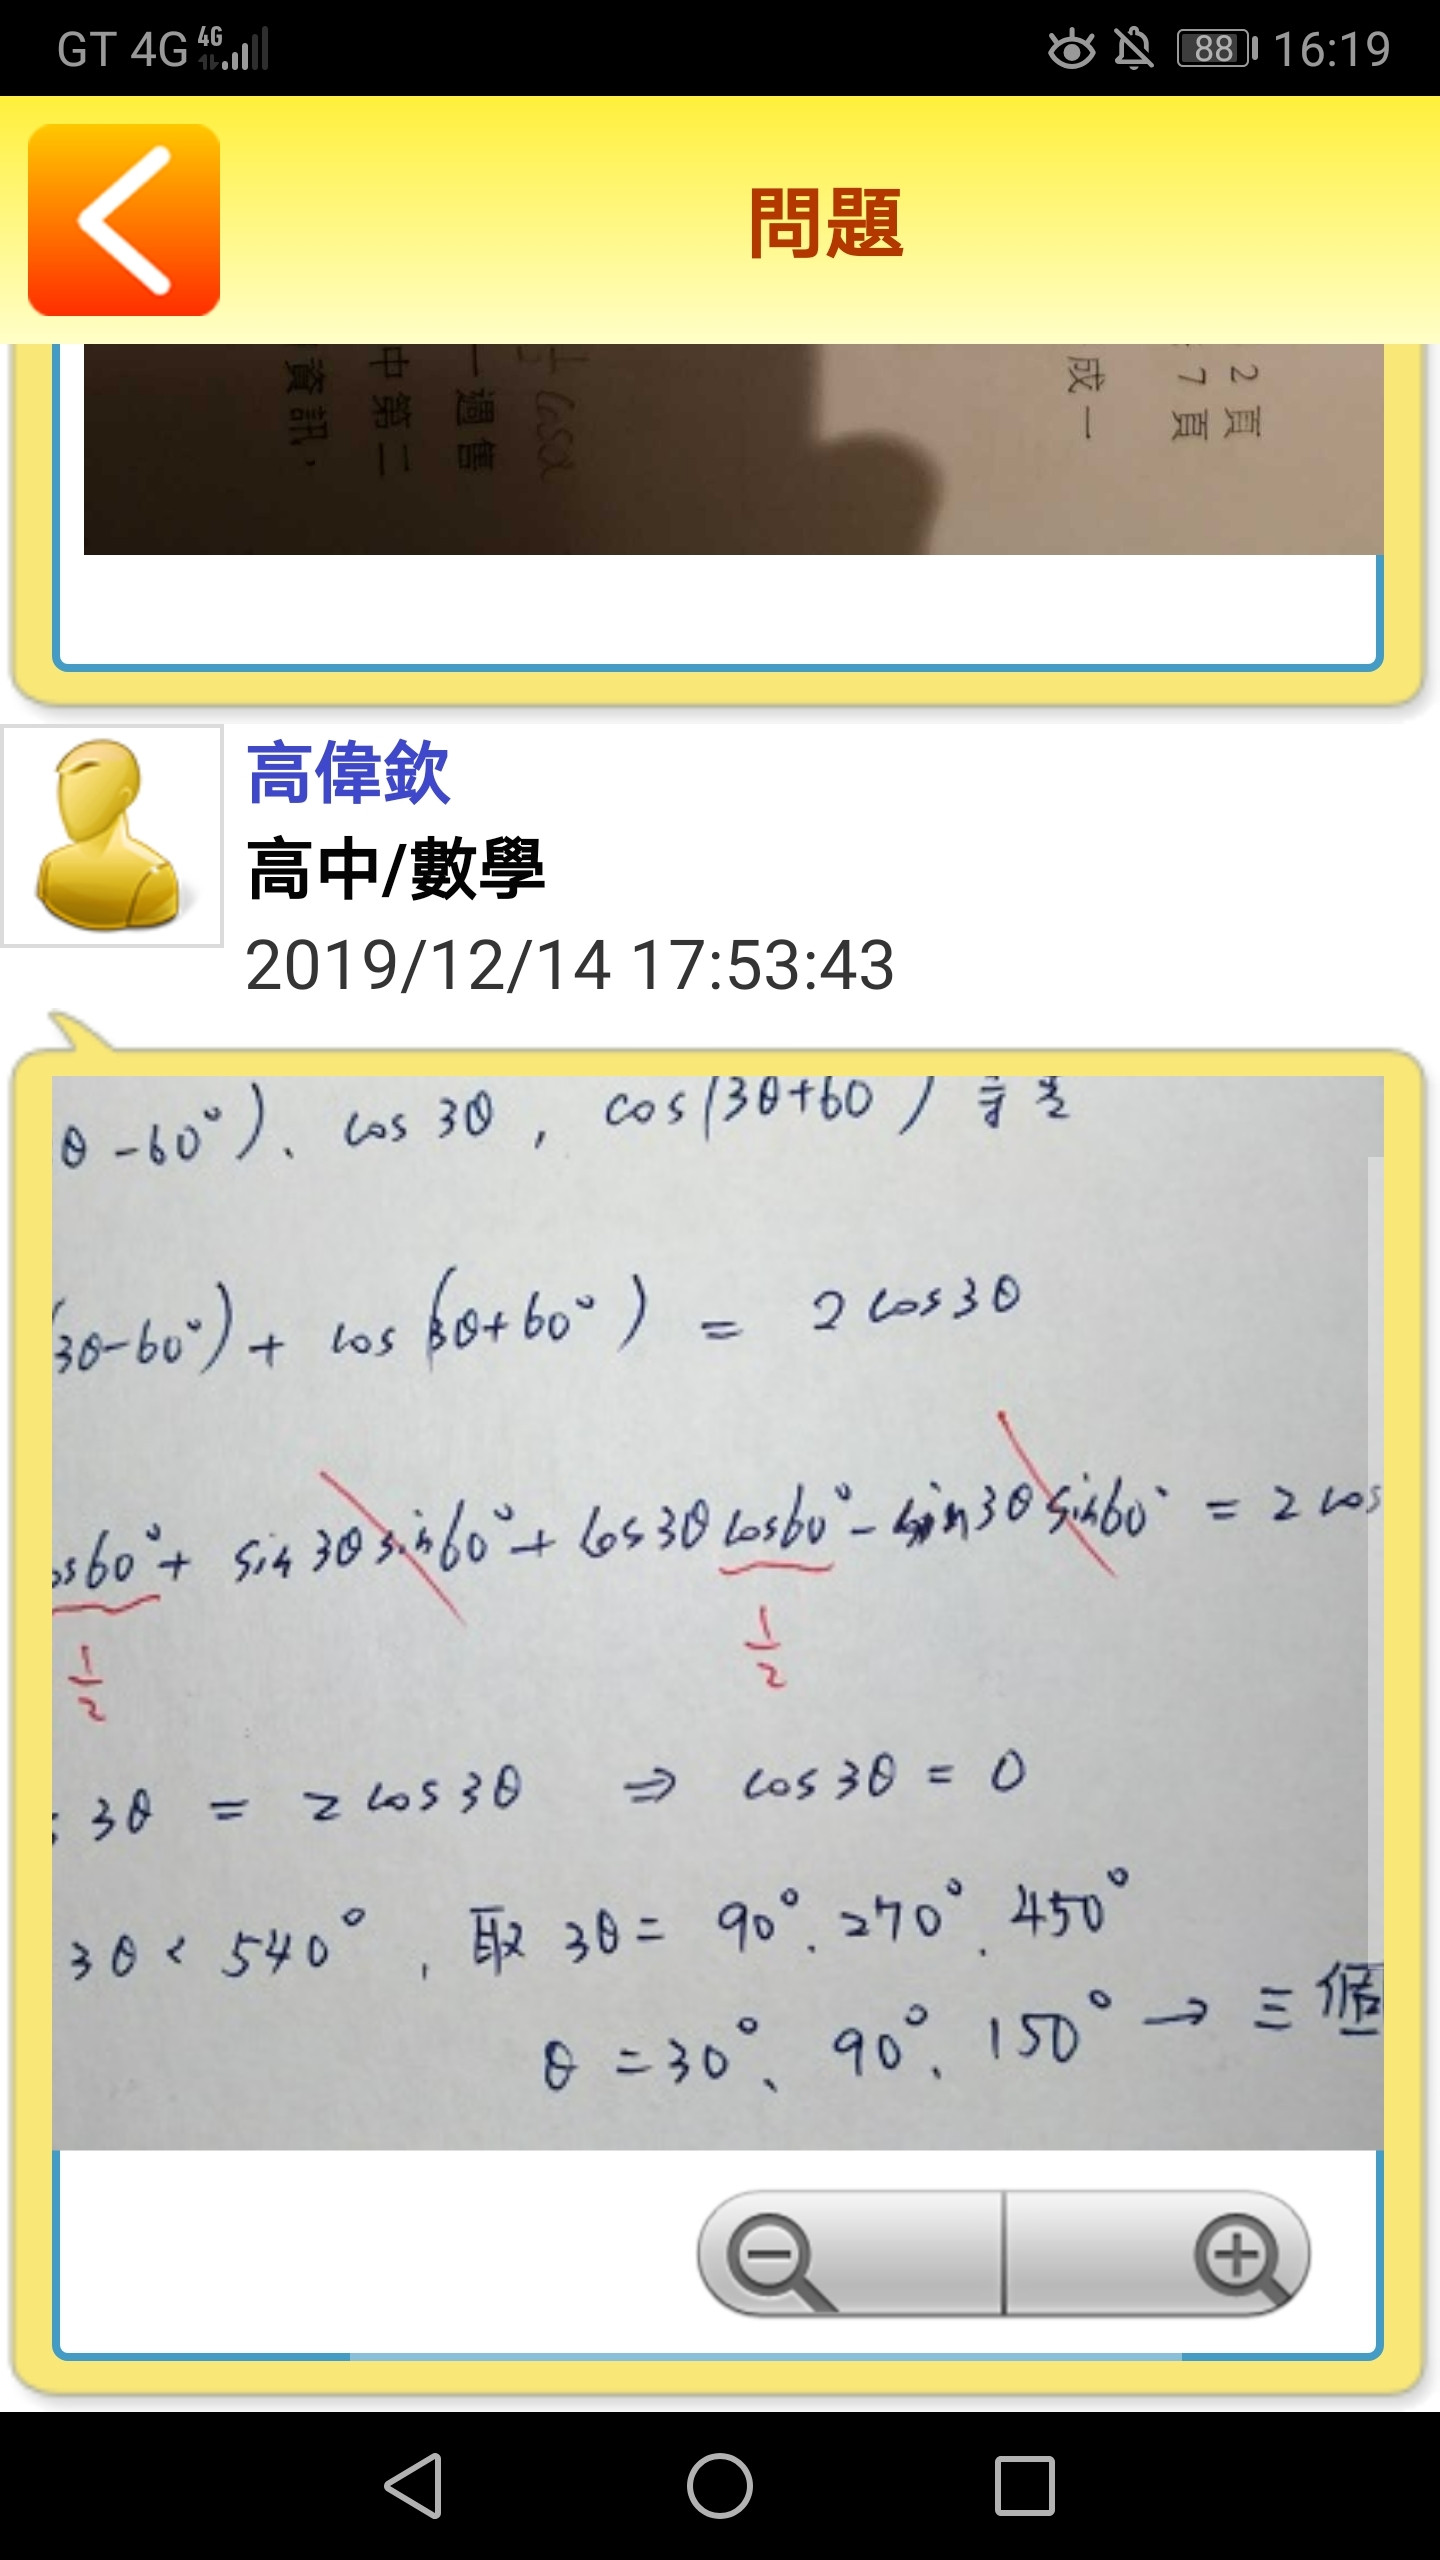 GT 4G 4G 88 16:19
問題
資訊，
中第二
一週售
成一
7頁
2頁
高偉欽
高中/數學
2019/12/14 17:53:43
θ-60°)、cos 3θ , cos(3θ+60)
(3θ-60°)+ cos(3θ+60°) = 2cos3θ
os60°+ sin3θsin60°+ cos3θcos60°-sin3θsin60° = 2cos
1/2 1/2
3θ = 2cos3θ ⇒ cos3θ = 0
3θ < 540°, 取 3θ= 90°、270°、450°
θ =30°、90°、150° → 三個